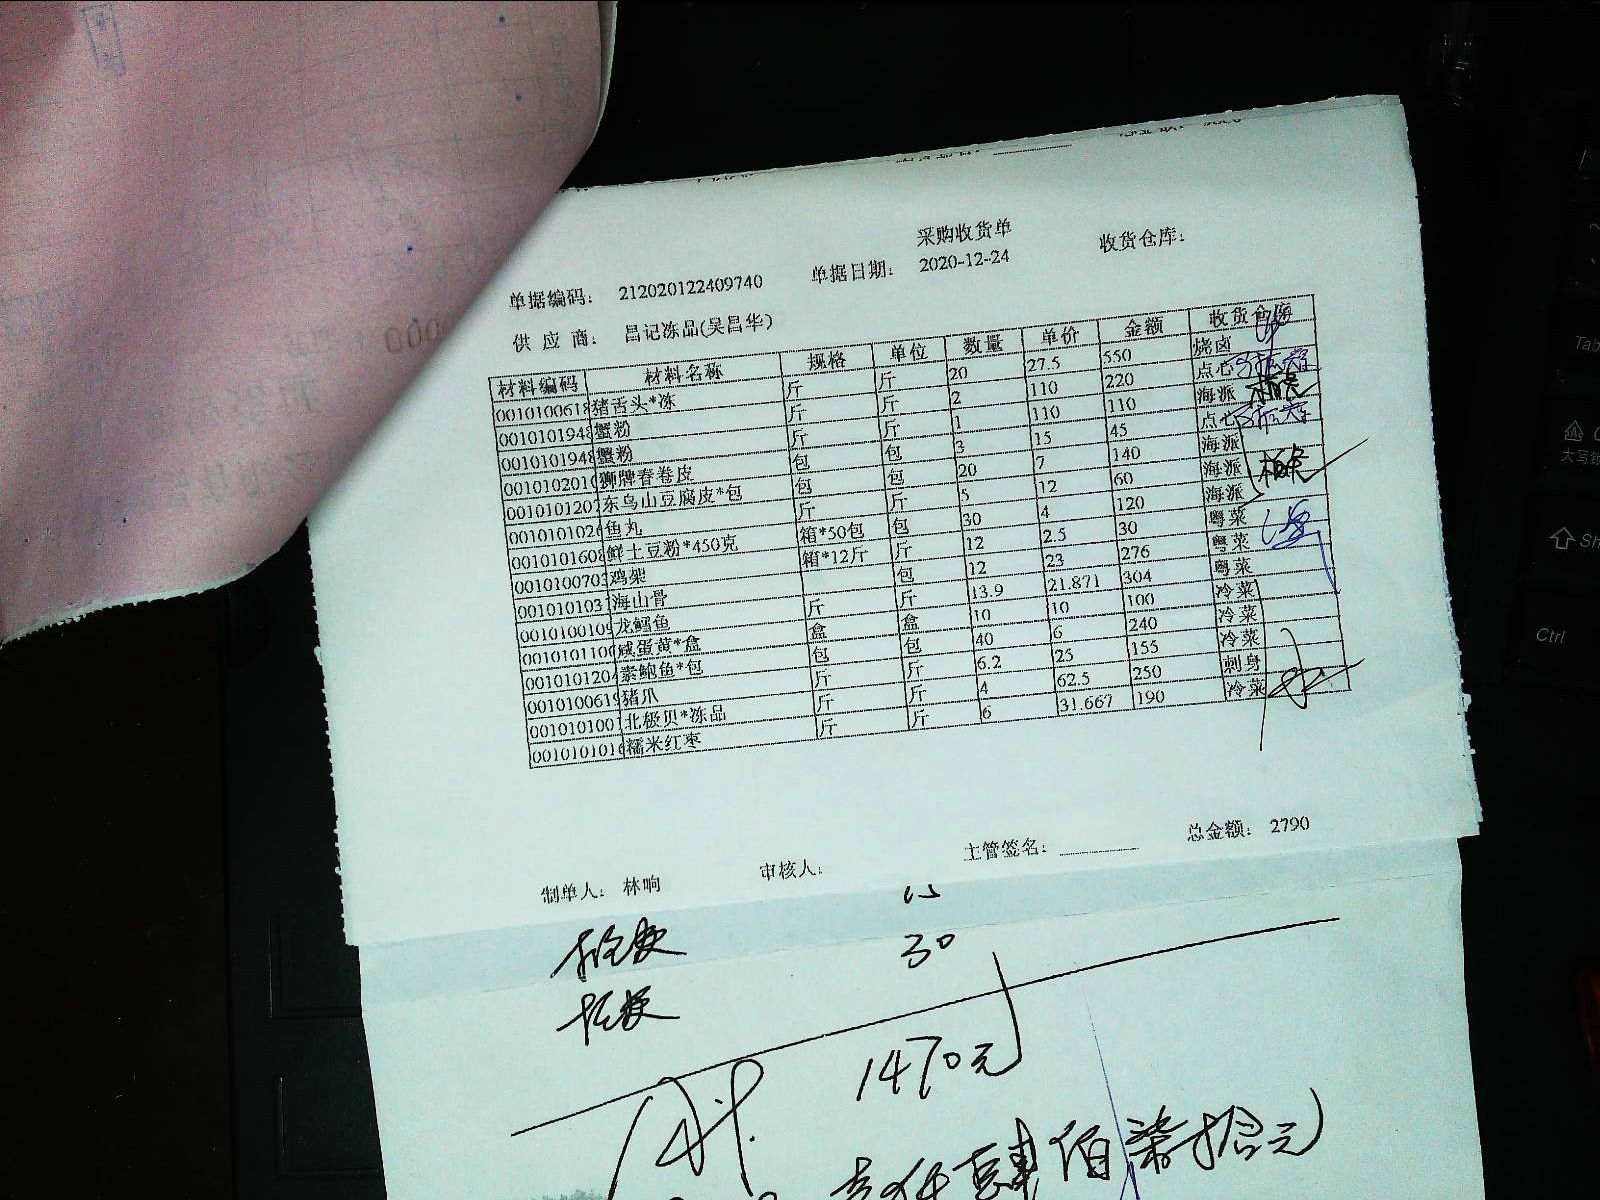 采购收货单
单据编码： 212020122409740 单据日期： 2020-12-24 收货仓库：
供 应 商： 昌记冻品(吴昌华)
材料编码 材料名称 规格 单位 数量 单价 金额 收货仓库
001010061 猪舌头*冻 斤 斤 20 27.5 550 烧卤
001010194 蟹粉 斤 斤 2 110 220 点心
001010194 蟹粉 斤 斤 1 110 110 海派
001010201 狮牌春卷皮 包 包 3 15 45 点心
001010120 东乌山豆腐皮*包 包 包 20 7 140 海派
001010102 鱼丸 斤 斤 5 12 60 海派
001010160 鲜土豆粉*450克 箱*50包 包 30 4 120 海派
001010070 鸡架 箱*12斤 斤 12 2.5 30 粤菜
001010103 海山骨 包 12 23 276 粤菜
001010010 龙鳕鱼 斤 斤 13.9 21.871 304 粤菜
001010110 咸蛋黄*盒 盒 盒 10 10 100 冷菜
001010120 素鲍鱼*包 包 包 40 6 240 冷菜
001010061 猪爪 斤 斤 6.2 25 155 冷菜
001010100 北极贝*冻品 斤 斤 4 62.5 250 刺身
001010101 糯米红枣 斤 斤 6 31.667 190 冷菜
制单人： 林响 审核人： 主管签名： 总金额： 2790
30
1470元
壹仟肆佰柒拾元
Tab
Ctrl